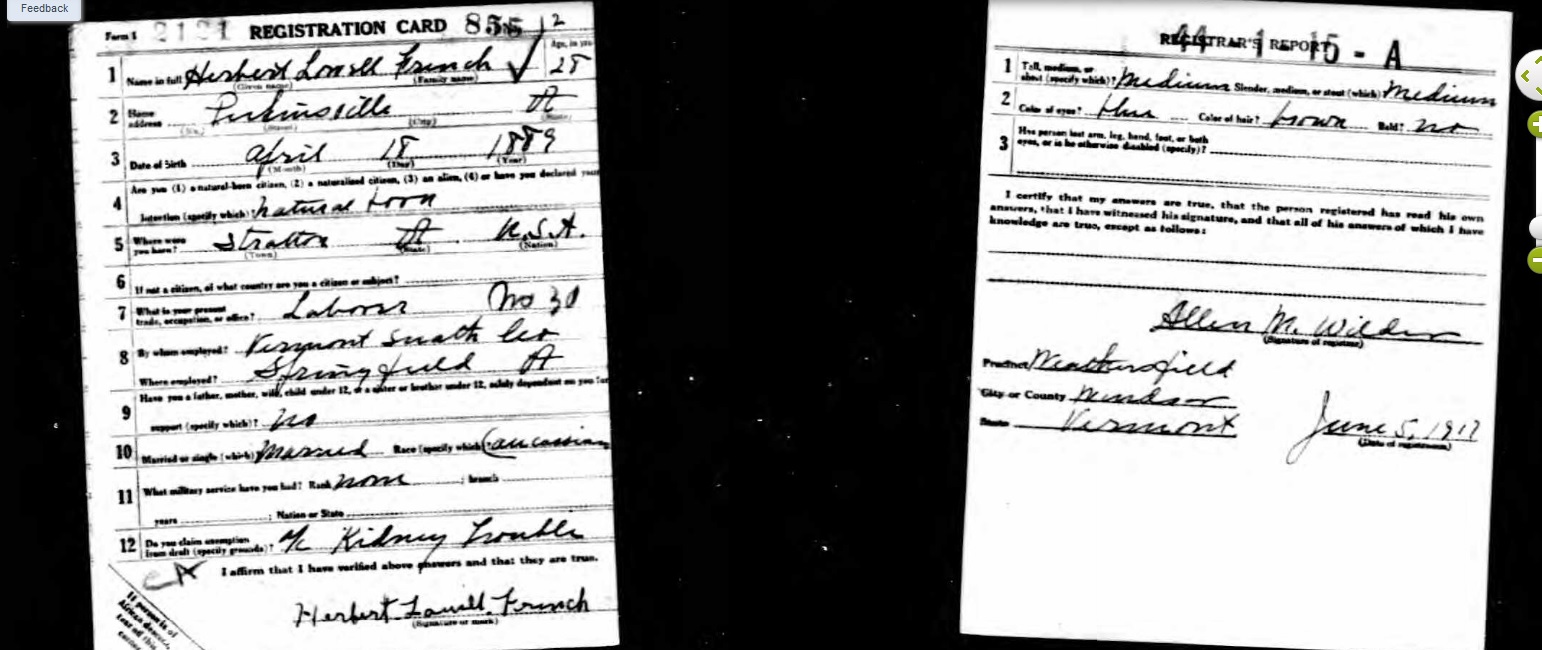 Feedback
Form 1 2121 REGISTRATION CARD 855 12
1 Name in full Herbert Lowell French Age, in yrs 28
(Given name) (Family name)
2 Home address Perkinsville Vt
(No.) (Street) (City) (State)
3 Date of birth April 18 1889
(Month) (Day) (Year)
4 Are you (1) a natural-born citizen, (2) a naturalized citizen, (3) an alien, (4) or have you declared your
intention (specify which)? natural born
5 Where were you born? Stratton Vt U.S.A.
(Town) (State) (Nation)
6 If not a citizen, of what country are you a citizen or subject?
7 What is your present trade, occupation, or office? Laborer No 30
8 By whom employed? Vermont Snath Co
Where employed? Springfield Vt
9 Have you a father, mother, wife, child under 12, or a sister or brother under 12, solely dependent on you for
support (specify which)? no
10 Married or single (which)? Married Race (specify which)? Caucassian
11 What military service have you had? Rank none ; branch
years ; Nation or State
12 Do you claim exemption from draft (specify grounds)? Kidney Trouble
I affirm that I have verified above answers and that they are true.
Herbert Lowell French
(Signature or mark)
If person is of
African descent,
tear off this
corner
44 1 15 - A
REGISTRAR'S REPORT
1 Tall, medium, or short (specify which)? Medium Slender, medium, or stout (which)? Medium
2 Color of eyes? blue Color of hair? brown Bald? no
3 Has person lost arm, leg, hand, foot, or both eyes, or is he otherwise disabled (specify)?
I certify that my answers are true, that the person registered has read his own
answers, that I have witnessed his signature, and that all of his answers of which I have
knowledge are true, except as follows:
Allen M. Wilder
(Signature of registrar)
Precinct Weathersfield
City or County Windsor
State Vermont June 5, 1917
(Date of registration)